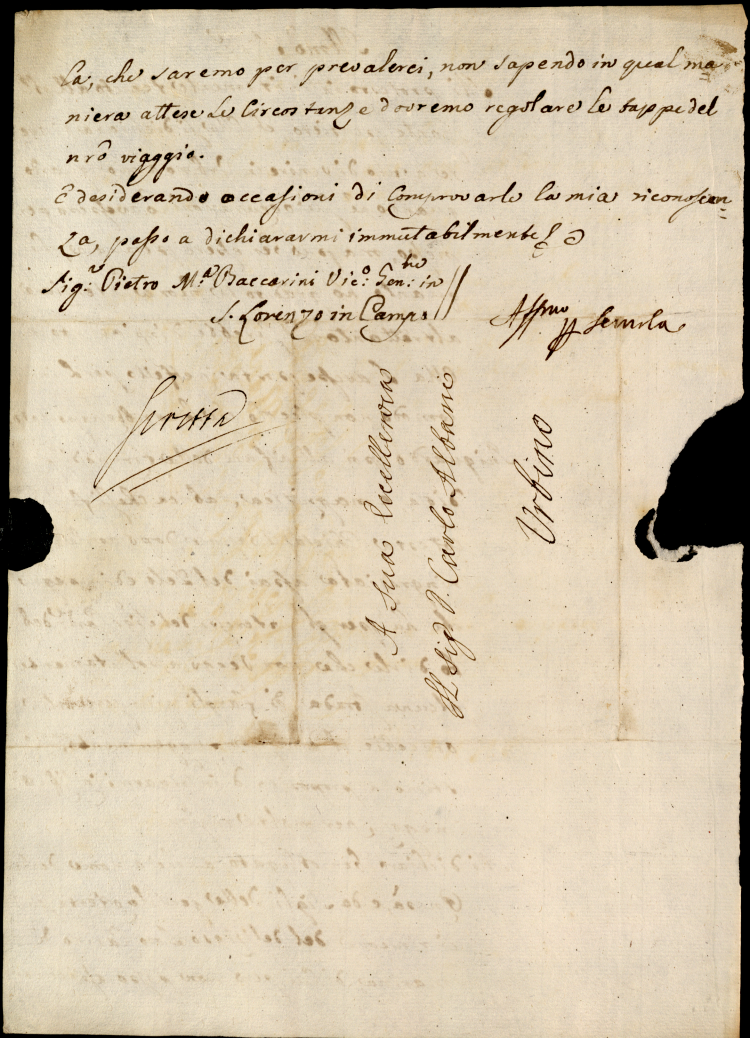 la, che saremo per prevalerci, non sapendo in qual ma=
niera attese le Circostanze dovremo regolare le tappe del
nrõ viaggio.
E desiderando occasioni di comprovarle la mia riconoscen=
za, passo a dichiararmi immutabilmente
Sig.r Pietro M.a Baccarini Vic.o Gen.le in
S. Lorenzo in Campo
Affmo
A Sua Eccellenza
Il Sig. D. Carlo Albani
Urbino